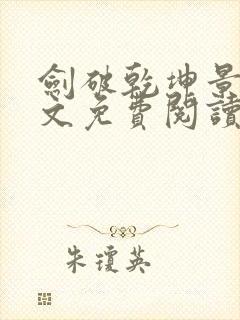 劍破乾坤景
文免費閱讀
朱瓊英